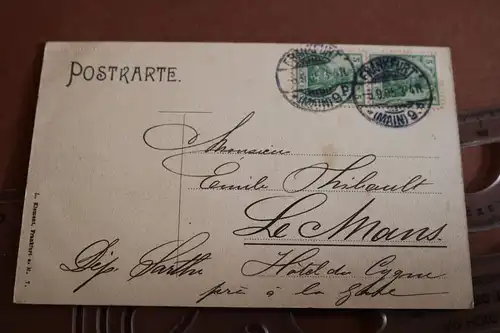 POSTKARTE.
FRANKFURT
(MAIN) 9
FRANKFURT
(MAIN) 9
5
5
Monsieur
Emile Thibault
Le Mans
Dép Sarthe
Hôtel du Cygne
près à la Gare
L. Klement, Frankfurt a. M.